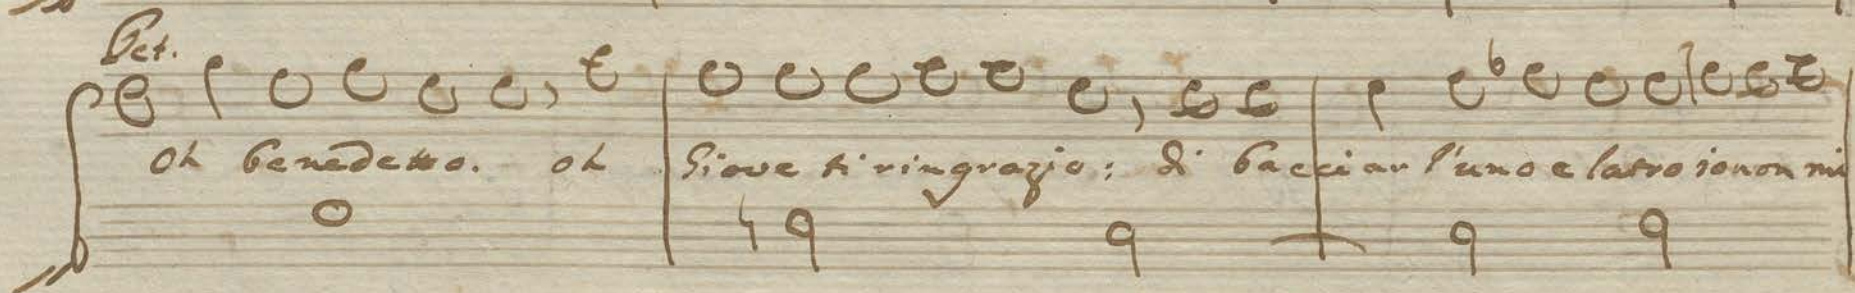 Bet.
oh benedetto. oh Giove ti ringrazio: di bacciar l'uno e latro io non mi